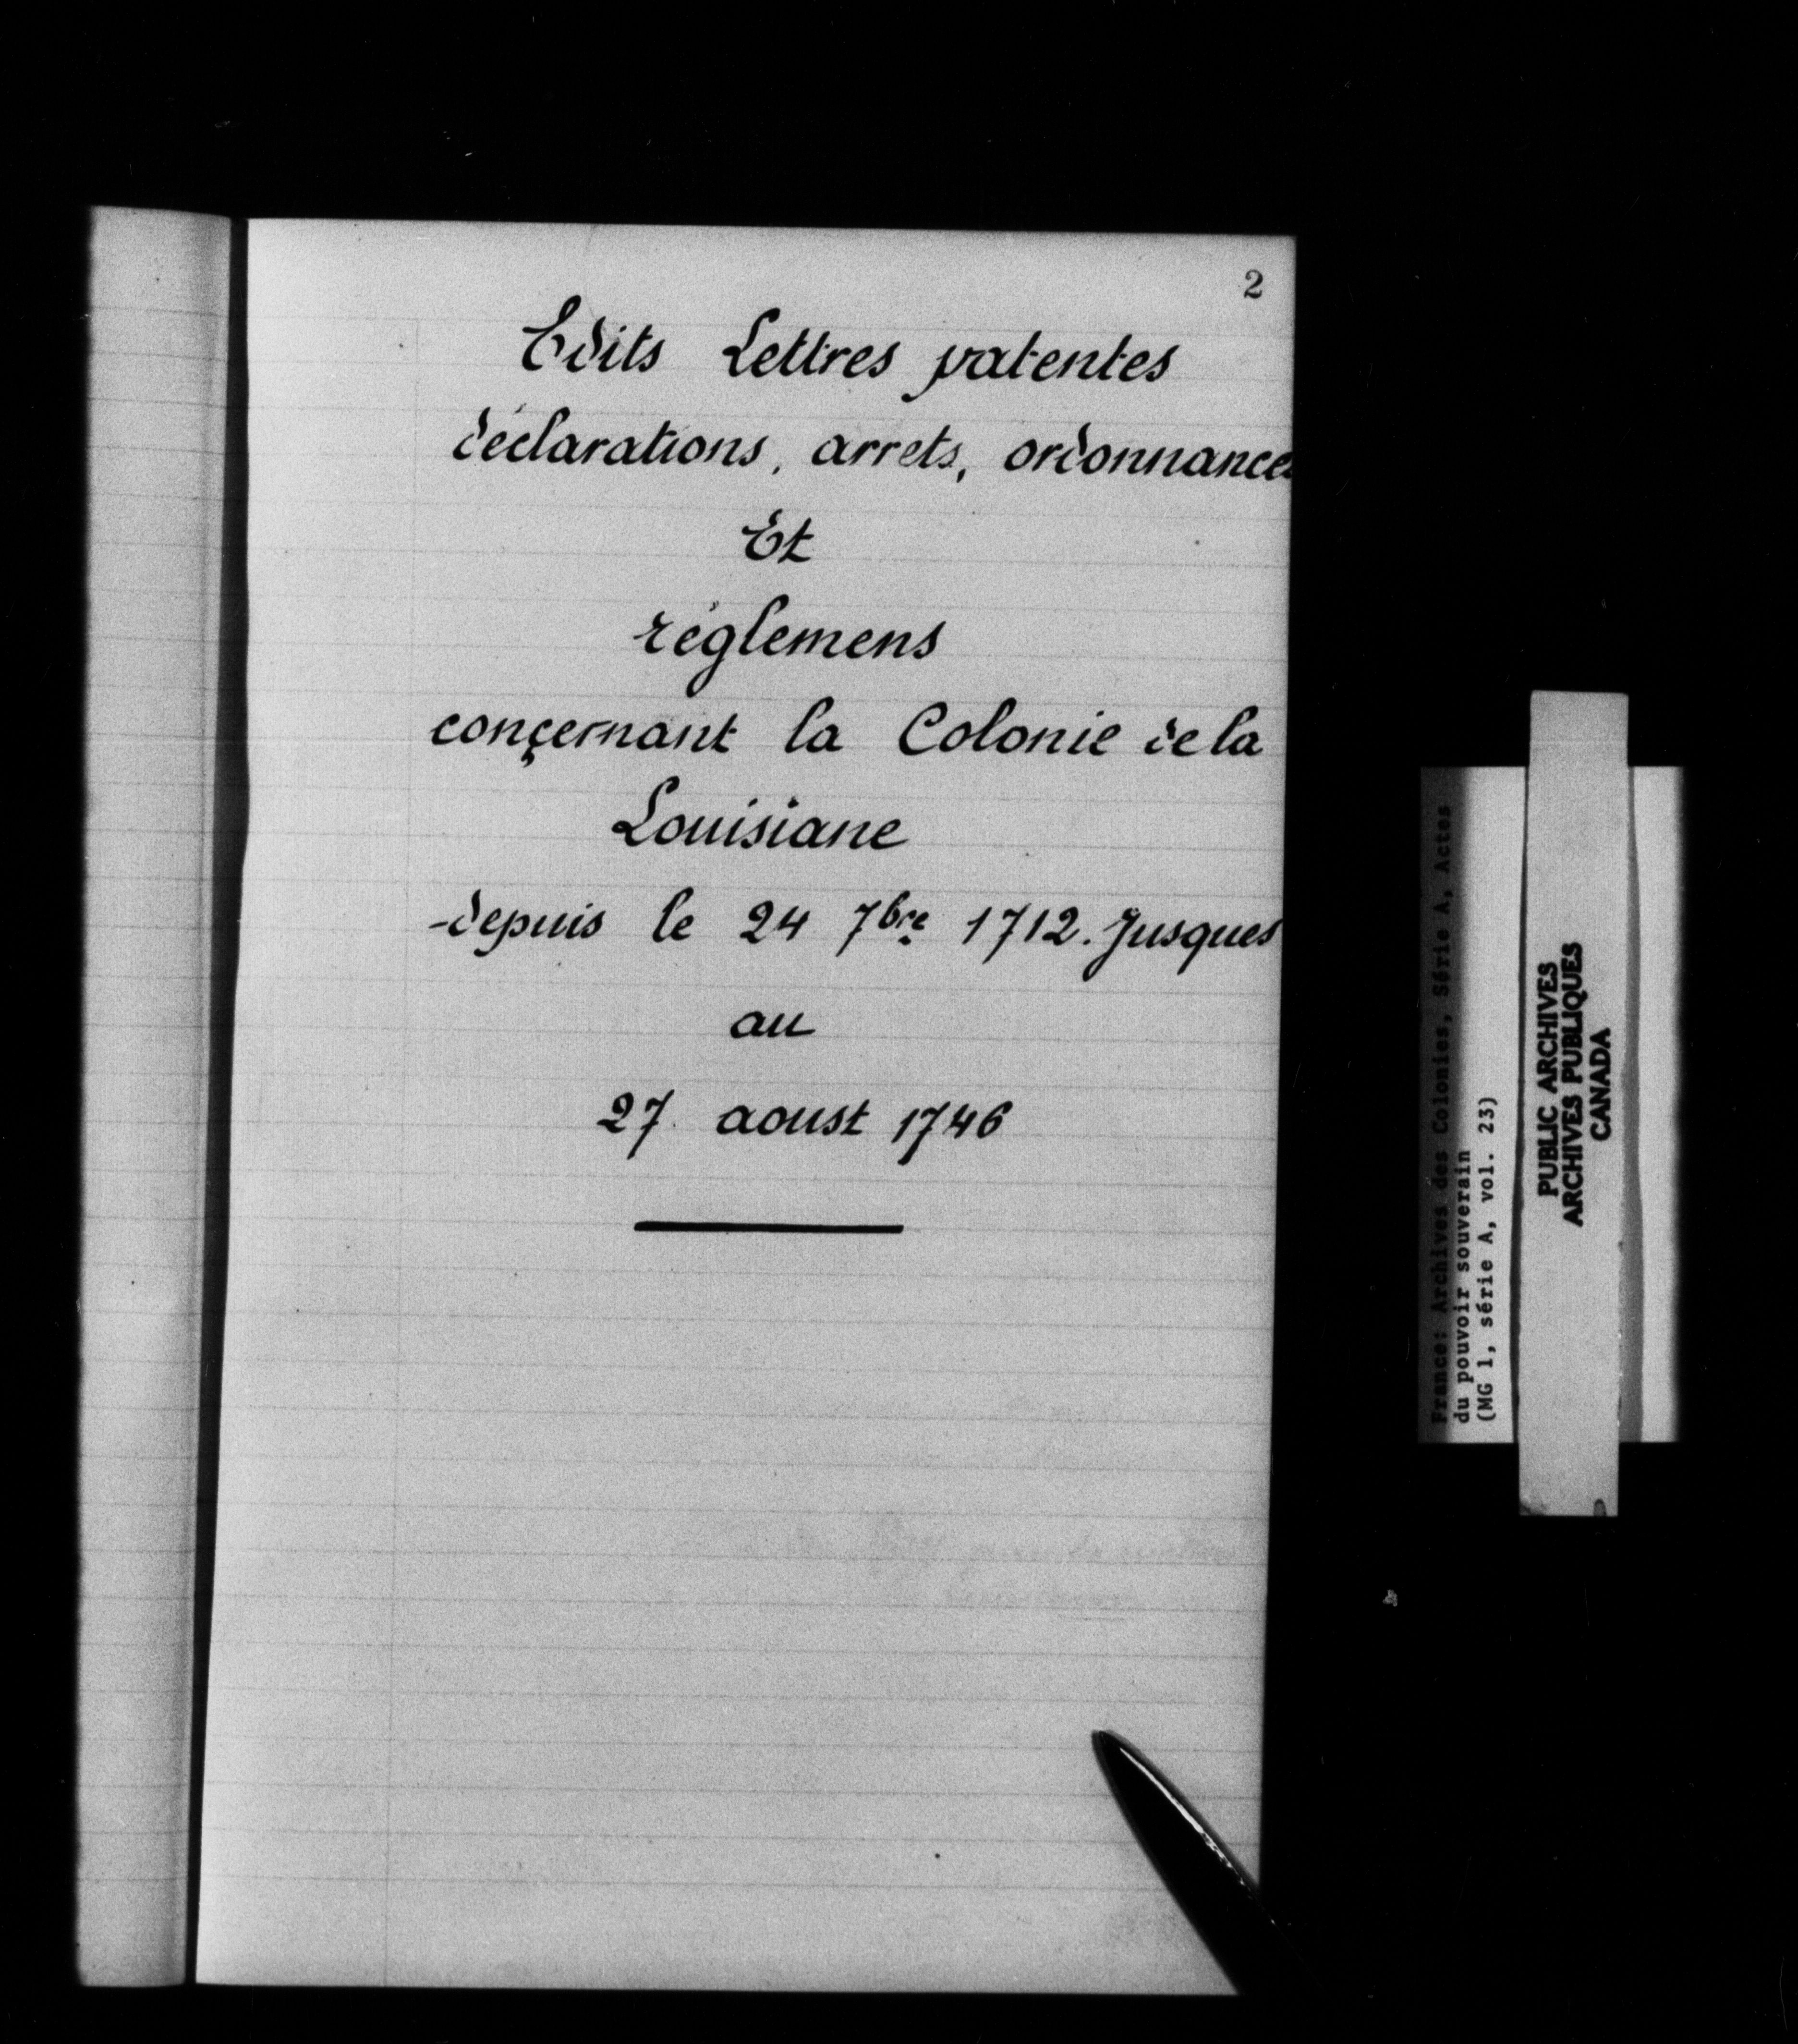 2
Edits Lettres patentes
déclarations, arrets, ordonnances
Et
réglemens
conçernant la Colonie de la
Louisiane
-depuis le 24 7bre 1712. Jusques
au
27 aoust 1746
France: Archives des Colonies, Série A, Actes
du pouvoir souverain
(MG 1, série A, vol. 23)
PUBLIC ARCHIVES
ARCHIVES PUBLIQUES
CANADA